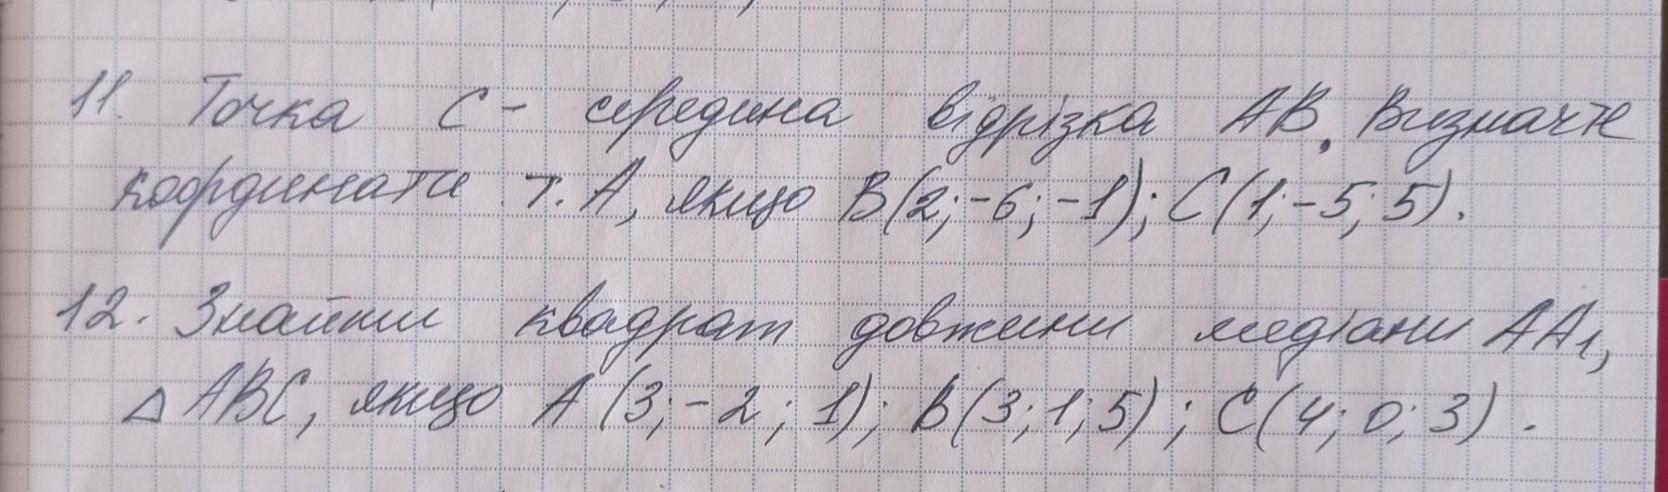 11. Точка С - середина відрізка АВ. Визначте
координати т. А, якщо В(2;-6;-1); С(1;-5;5).
12. Знайти квадрат довжини медіани АА₁,
△ АВС, якщо А (3;-2; 1); В(3;1;5); С(4; 0; 3).